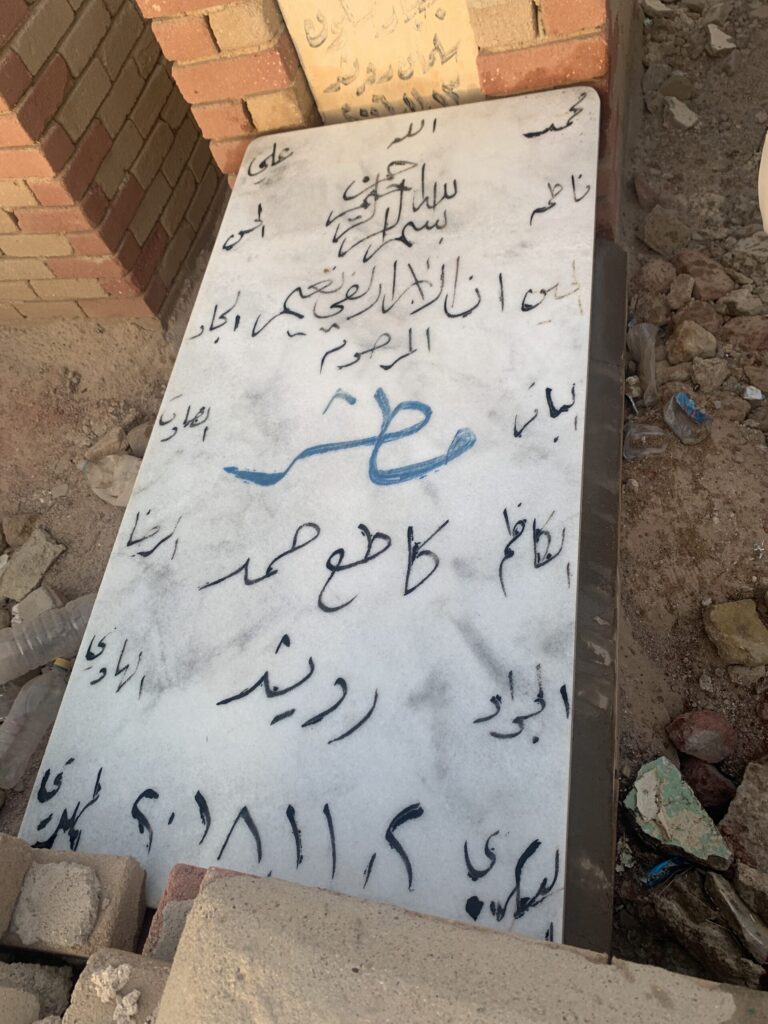 سلمان رويشد
محمد الله علي
فاطمه بسم الله الرحمن الرحيم الحسن
الحسين ان الابرار لفي نعيم السجاد
المرحومه
الباقر مطشر الصادق
الكاظم كاطع حمد الرضا
الجواد رويشد الهادي
العسكري ٢٠١٨/١١/٢ المهدي